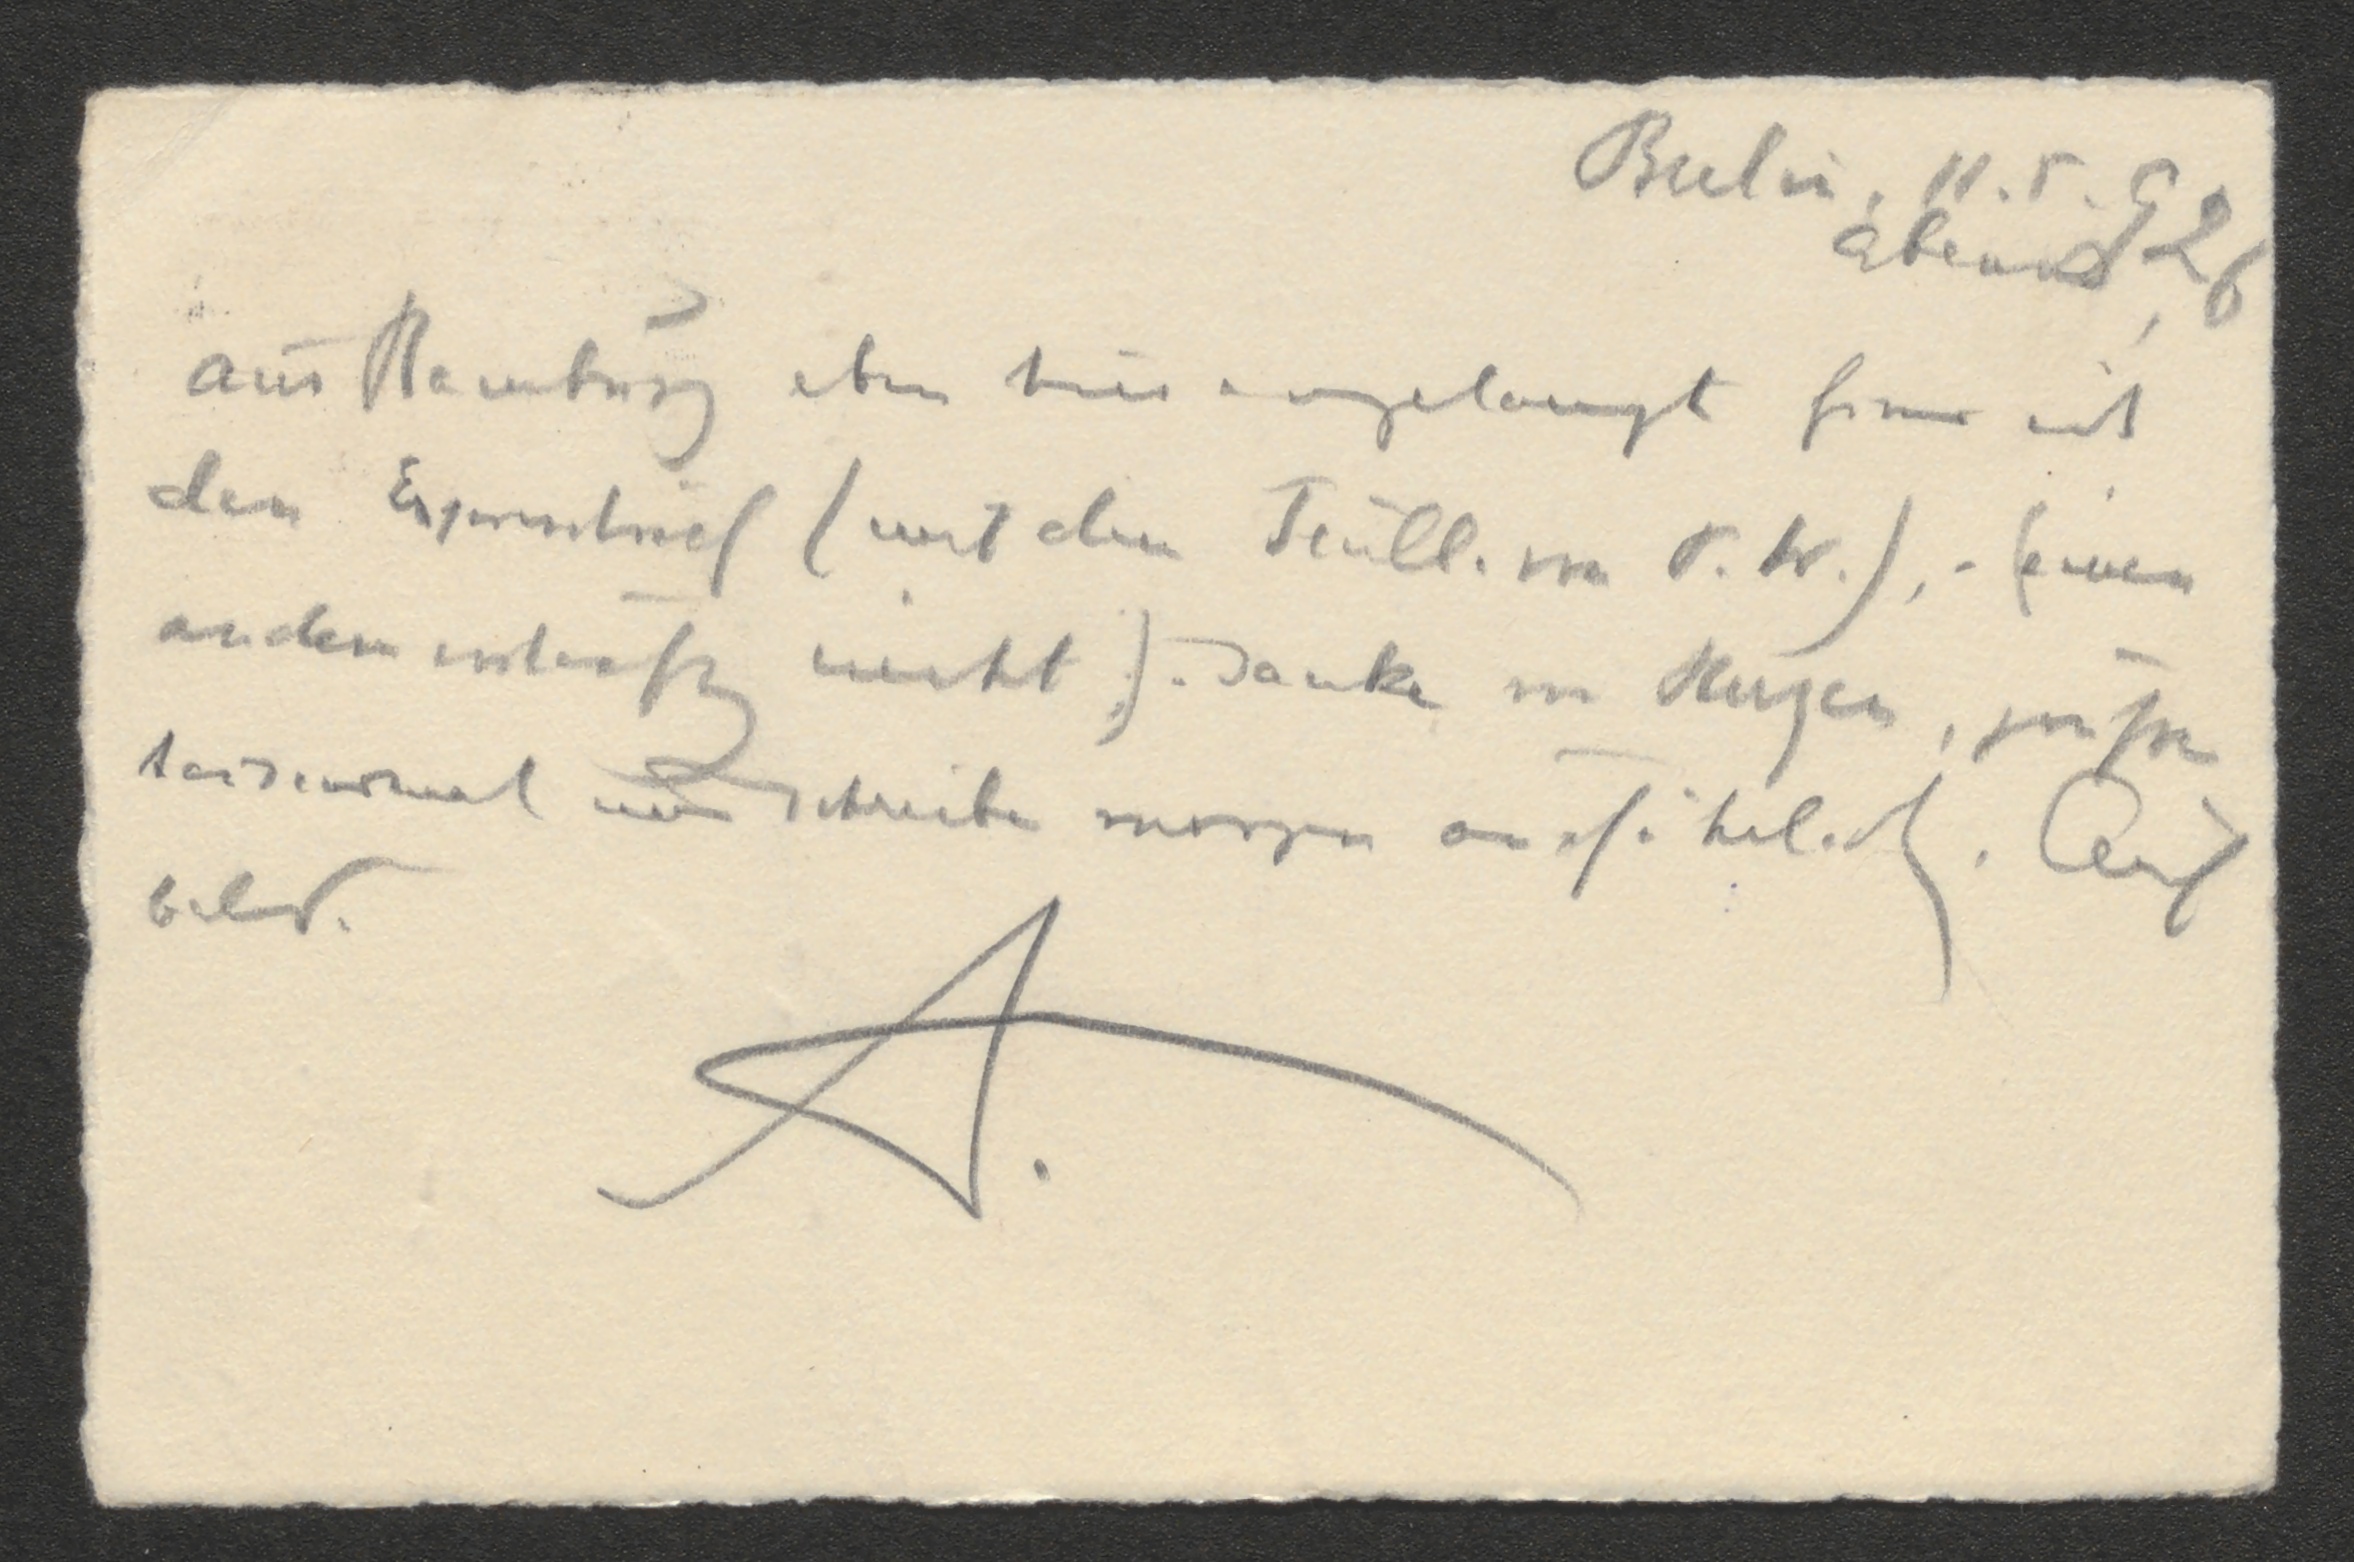 Berlin, 11.5.926
abends,
aus Hamburg eben hier angelangt finde ich
den Expressbrief (mit dem Feuill. von P. W.), - (einen
andern nicht). Danke von Herzen, grüsse
tausendmal und schreibe morgen ausführlich. Auf
bald.
A.